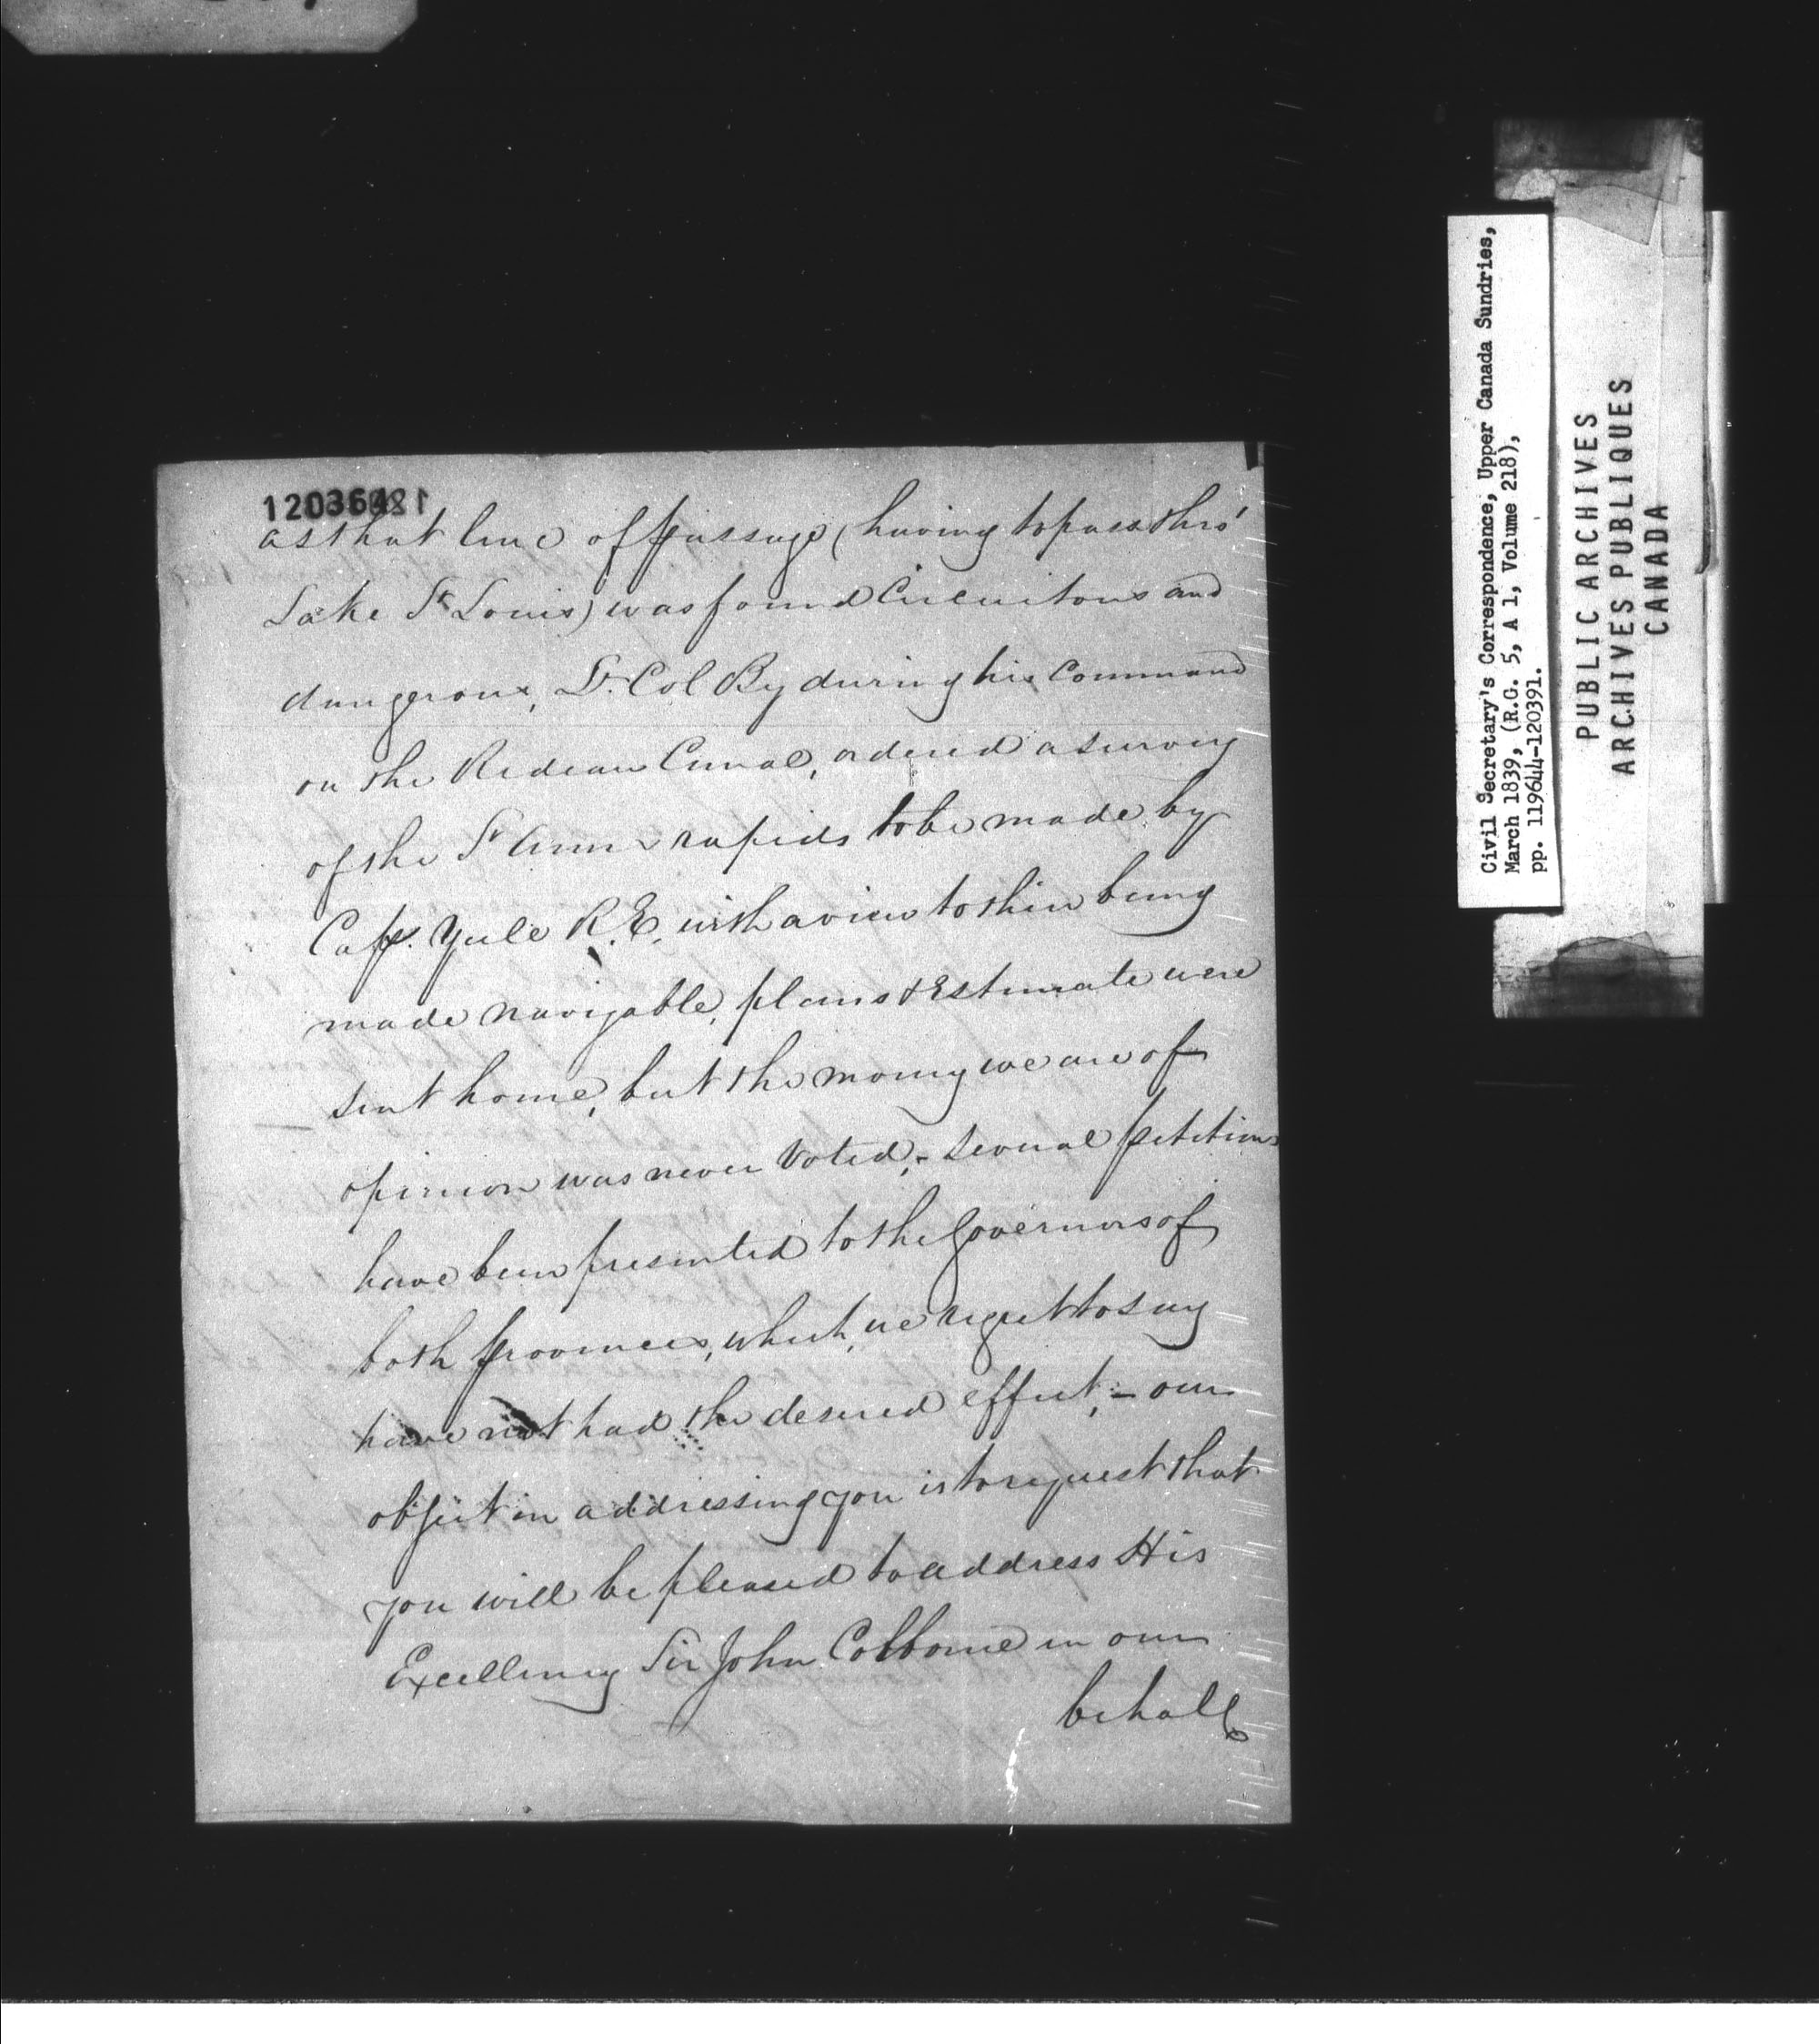 120364
as that line of passage (having to pass thro'
Lake St Louis) was found Circuitous and
dangerous, Lt. Col By during his Command
on the Rideau Canal, ordered a survey
of the St Anns rapids to be made by
Capt. Yule R.E. with a view to their being
made navigable, plans & Estimate were
sent home, but the money we are of
opinion was never Voted, - several petitions
have been presented to the Governors of
both provinces, which, we regret to say
have not had the desired effect, - our
object in addressing you is to request that
you will be pleased to address His
Excellency Sir John Colborne in our
behalf
Civil Secretary's Correspondence, Upper Canada Sundries,
March 1839, (R.G. 5, A 1, Volume 218),
pp. 119644-120391.
PUBLIC ARCHIVES
ARCHIVES PUBLIQUES
CANADA